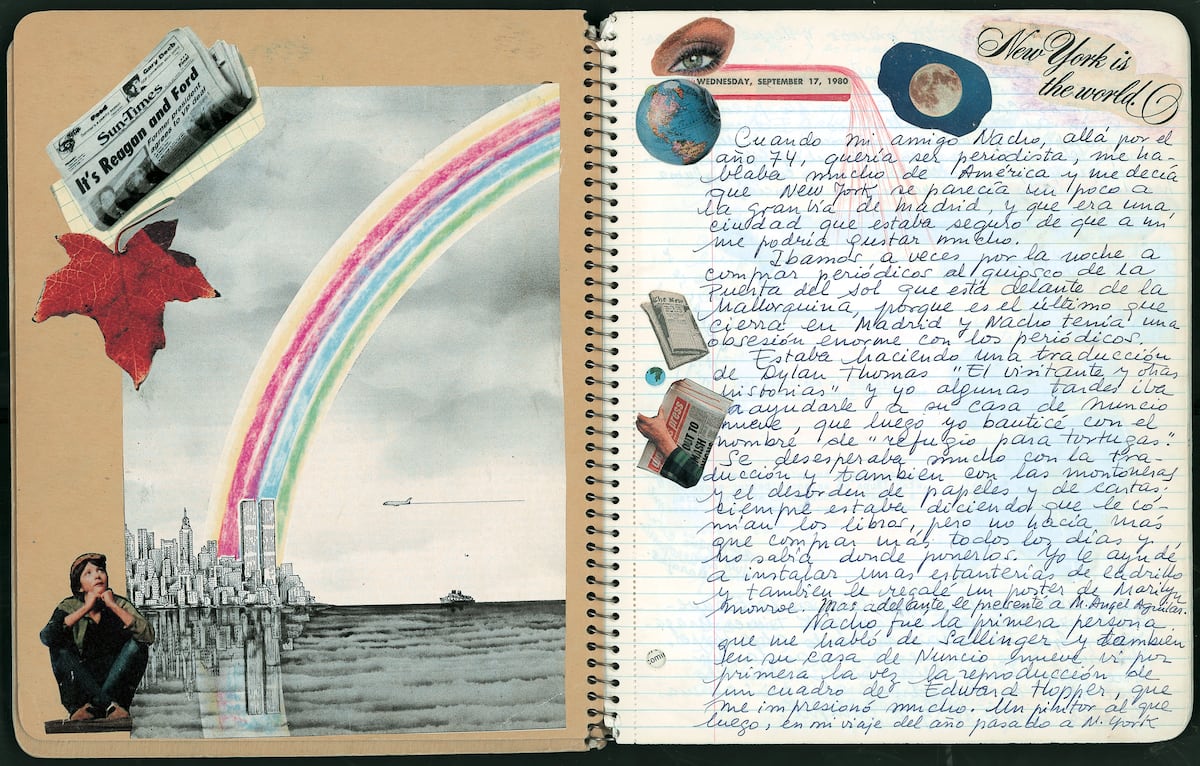 Sun-Times
It's Reagan and Ford
WEDNESDAY, SEPTEMBER 17, 1980
New York is
the world.
Cuando mi amigo Nacho, allá por el
año 74 quería ser periodista, me ha
blaba mucho de América y me decía
que New York se parecía un poco a
la gran vía de Madrid y que era una
ciudad que estaba seguro de que a mí
me podría gustar mucho.
Ibamos a veces por la noche a
comprar periódicos al quiosco de la
Puerta del Sol que está delante de la
Mallorquina, porque es el último que
cierra en Madrid y Nacho tenía una
obsesión enorme con los periódicos.
Estaba haciendo una traducción
de Dylan Thomas "El visitante y otras
historias" y yo algunas tardes iba
a ayudarle a su casa de Nuncio
nueve, que luego yo bauticé con el
nombre de "refugio para tortugas".
Se desesperaba mucho con la tra-
ducción y también con las montoneras
y el desorden de papeles y de cartas.
Siempre estaba diciendo que le co-
mían los libros, pero no hacía más
que comprar más todos los días y
no sabía donde ponerlos. Yo le ayudé
a instalar unas estanterías de ladrillo
y también le regalé un de Marilyn
Monroe. Mas adelante le presenté a
Nacho fue la primera persona
que me habló de Sallinger y también
en su casa de Nuncio nueve vi por
primera vez la reproducción de
un cuadro de Edward Hopper, que
me impresionó mucho. Un pintor al que
luego en mi viaje del año pasado a N. York
The New
press